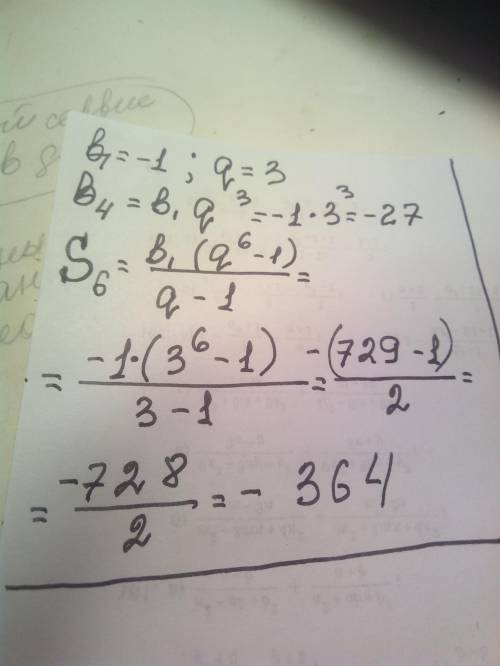 b₁ = -1 ; q = 3
b₄ = b₁ q³ = -1 · 3³ = -27
S₆ = b₁ (q⁶ - 1) / q - 1 =
= -1 · (3⁶ - 1) / 3 - 1 = -(729 - 1) / 2 =
= -728 / 2 = - 364